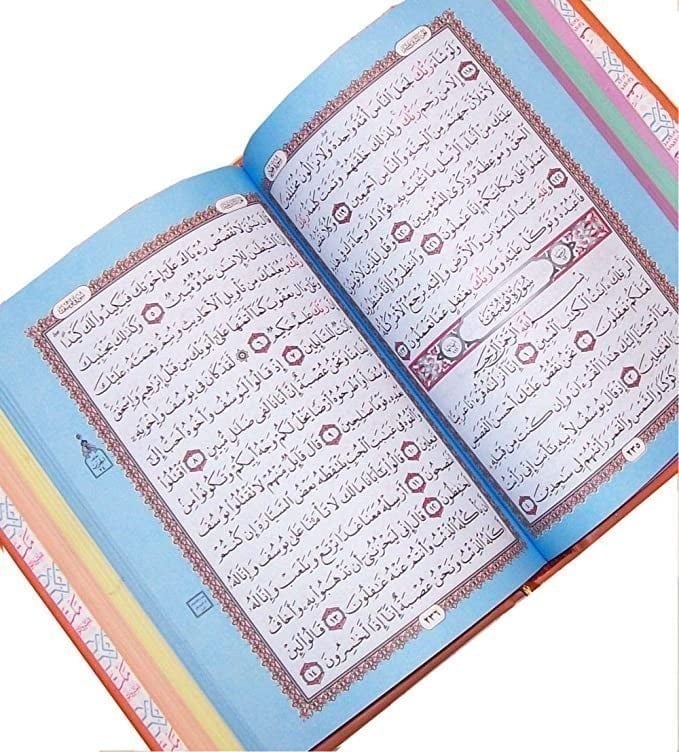 وَلَوْ شَآءَ رَبُّكَ لَجَعَلَ ٱلنَّاسَ أُمَّةً وَٰحِدَةً وَلَا يَزَالُونَ مُخْتَلِفِينَ
١١٨ إِلَّا مَن رَّحِمَ رَبُّكَ وَلِذَٰلِكَ خَلَقَهُمْ وَتَمَّتْ كَلِمَةُ رَبِّكَ
لَأَمْلَأَنَّ جَهَنَّمَ مِنَ ٱلْجِنَّةِ وَٱلنَّاسِ أَجْمَعِينَ ١١٩ وَكُلًّا نَّقُصُّ
عَلَيْكَ مِنْ أَنۢبَآءِ ٱلرُّسُلِ مَا نُثَبِّتُ بِهِۦ فُؤَادَكَ وَجَآءَكَ فِى هَٰذِهِ
ٱلْحَقُّ وَمَوْعِظَةٌ وَذِكْرَىٰ لِلْمُؤْمِنِينَ ١٢٠ وَقُل لِّلَّذِينَ لَا يُؤْمِنُونَ
ٱعْمَلُوا۟ عَلَىٰ مَكَانَتِكُمْ إِنَّا عَٰمِلُونَ ١٢١ وَٱنتَظِرُوٓا۟ إِنَّا مُنتَظِرُونَ ١٢٢
وَلِلَّهِ غَيْبُ ٱلسَّمَٰوَٰتِ وَٱلْأَرْضِ وَإِلَيْهِ يُرْجَعُ ٱلْأَمْرُ كُلُّهُۥ
فَٱعْبُدْهُ وَتَوَكَّلْ عَلَيْهِ وَمَا رَبُّكَ بِغَٰفِلٍ عَمَّا تَعْمَلُونَ ١٢٣
سُورَةُ يُوسُفَ
بِسْمِ ٱللَّهِ ٱلرَّحْمَٰنِ ٱلرَّحِيمِ
الٓر تِلْكَ ءَايَٰتُ ٱلْكِتَٰبِ ٱلْمُبِينِ ١ إِنَّآ أَنزَلْنَٰهُ قُرْءَٰنًا عَرَبِيًّا
لَّعَلَّكُمْ تَعْقِلُونَ ٢ نَحْنُ نَقُصُّ عَلَيْكَ أَحْسَنَ ٱلْقَصَصِ
بِمَآ أَوْحَيْنَآ إِلَيْكَ هَٰذَا ٱلْقُرْءَانَ وَإِن كُنتَ مِن قَبْلِهِۦ لَمِنَ
ٱلْغَٰفِلِينَ ٣ إِذْ قَالَ يُوسُفُ لِأَبِيهِ يَٰٓأَبَتِ إِنِّى رَأَيْتُ أَحَدَ عَشَرَ
كَوْكَبًا وَٱلشَّمْسَ وَٱلْقَمَرَ رَأَيْتُهُمْ لِى سَٰجِدِينَ ٤
٢٣٥
قَالَ يَٰبُنَىَّ لَا تَقْصُصْ رُءْيَاكَ عَلَىٰٓ إِخْوَتِكَ فَيَكِيدُوا۟ لَكَ كَيْدًا إِنَّ
ٱلشَّيْطَٰنَ لِلْإِنسَٰنِ عَدُوٌّ مُّبِينٌ ٥ وَكَذَٰلِكَ يَجْتَبِيكَ
رَبُّكَ وَيُعَلِّمُكَ مِن تَأْوِيلِ ٱلْأَحَادِيثِ وَيُتِمُّ نِعْمَتَهُۥ عَلَيْكَ
وَعَلَىٰٓ ءَالِ يَعْقُوبَ كَمَآ أَتَمَّهَا عَلَىٰٓ أَبَوَيْكَ مِن قَبْلُ إِبْرَٰهِيمَ وَإِسْحَٰقَ
إِنَّ رَبَّكَ عَلِيمٌ حَكِيمٌ ٦ لَّقَدْ كَانَ فِى يُوسُفَ وَإِخْوَتِهِۦٓ
ءَايَٰتٌ لِّلسَّآئِلِينَ ٧ إِذْ قَالُوا۟ لَيُوسُفُ وَأَخُوهُ أَحَبُّ إِلَىٰٓ
أَبِينَا مِنَّا وَنَحْنُ عُصْبَةٌ إِنَّ أَبَانَا لَفِى ضَلَٰلٍ مُّبِينٍ ٨ ٱقْتُلُوا۟
يُوسُفَ أَوِ ٱطْرَحُوهُ أَرْضًا يَخْلُ لَكُمْ وَجْهُ أَبِيكُمْ وَتَكُونُوا۟ مِنۢ
بَعْدِهِۦ قَوْمًا صَٰلِحِينَ ٩ قَالَ قَآئِلٌ مِّنْهُمْ لَا تَقْتُلُوا۟ يُوسُفَ
وَأَلْقُوهُ فِى غَيَٰبَتِ ٱلْجُبِّ يَلْتَقِطْهُ بَعْضُ ٱلسَّيَّارَةِ إِن كُنتُمْ
فَٰعِلِينَ ١٠ قَالُوا۟ يَٰٓأَبَانَا مَا لَكَ لَا تَأْمَ۫نَّا عَلَىٰ يُوسُفَ وَإِنَّا لَهُۥ
لَنَٰصِحُونَ ١١ أَرْسِلْهُ مَعَنَا غَدًا يَرْتَعْ وَيَلْعَبْ وَإِنَّا لَهُۥ
لَحَٰفِظُونَ ١٢ قَالَ إِنِّى لَيَحْزُنُنِىٓ أَن تَذْهَبُوا۟ بِهِۦ وَأَخَافُ
أَن يَأْكُلَهُ ٱلذِّئْبُ وَأَنتُمْ عَنْهُ غَٰفِلُونَ ١٣ قَالُوا۟ لَئِنْ
أَكَلَهُ ٱلذِّئْبُ وَنَحْنُ عُصْبَةٌ إِنَّآ إِذًا لَّخَٰسِرُونَ ١٤
٢٣٦